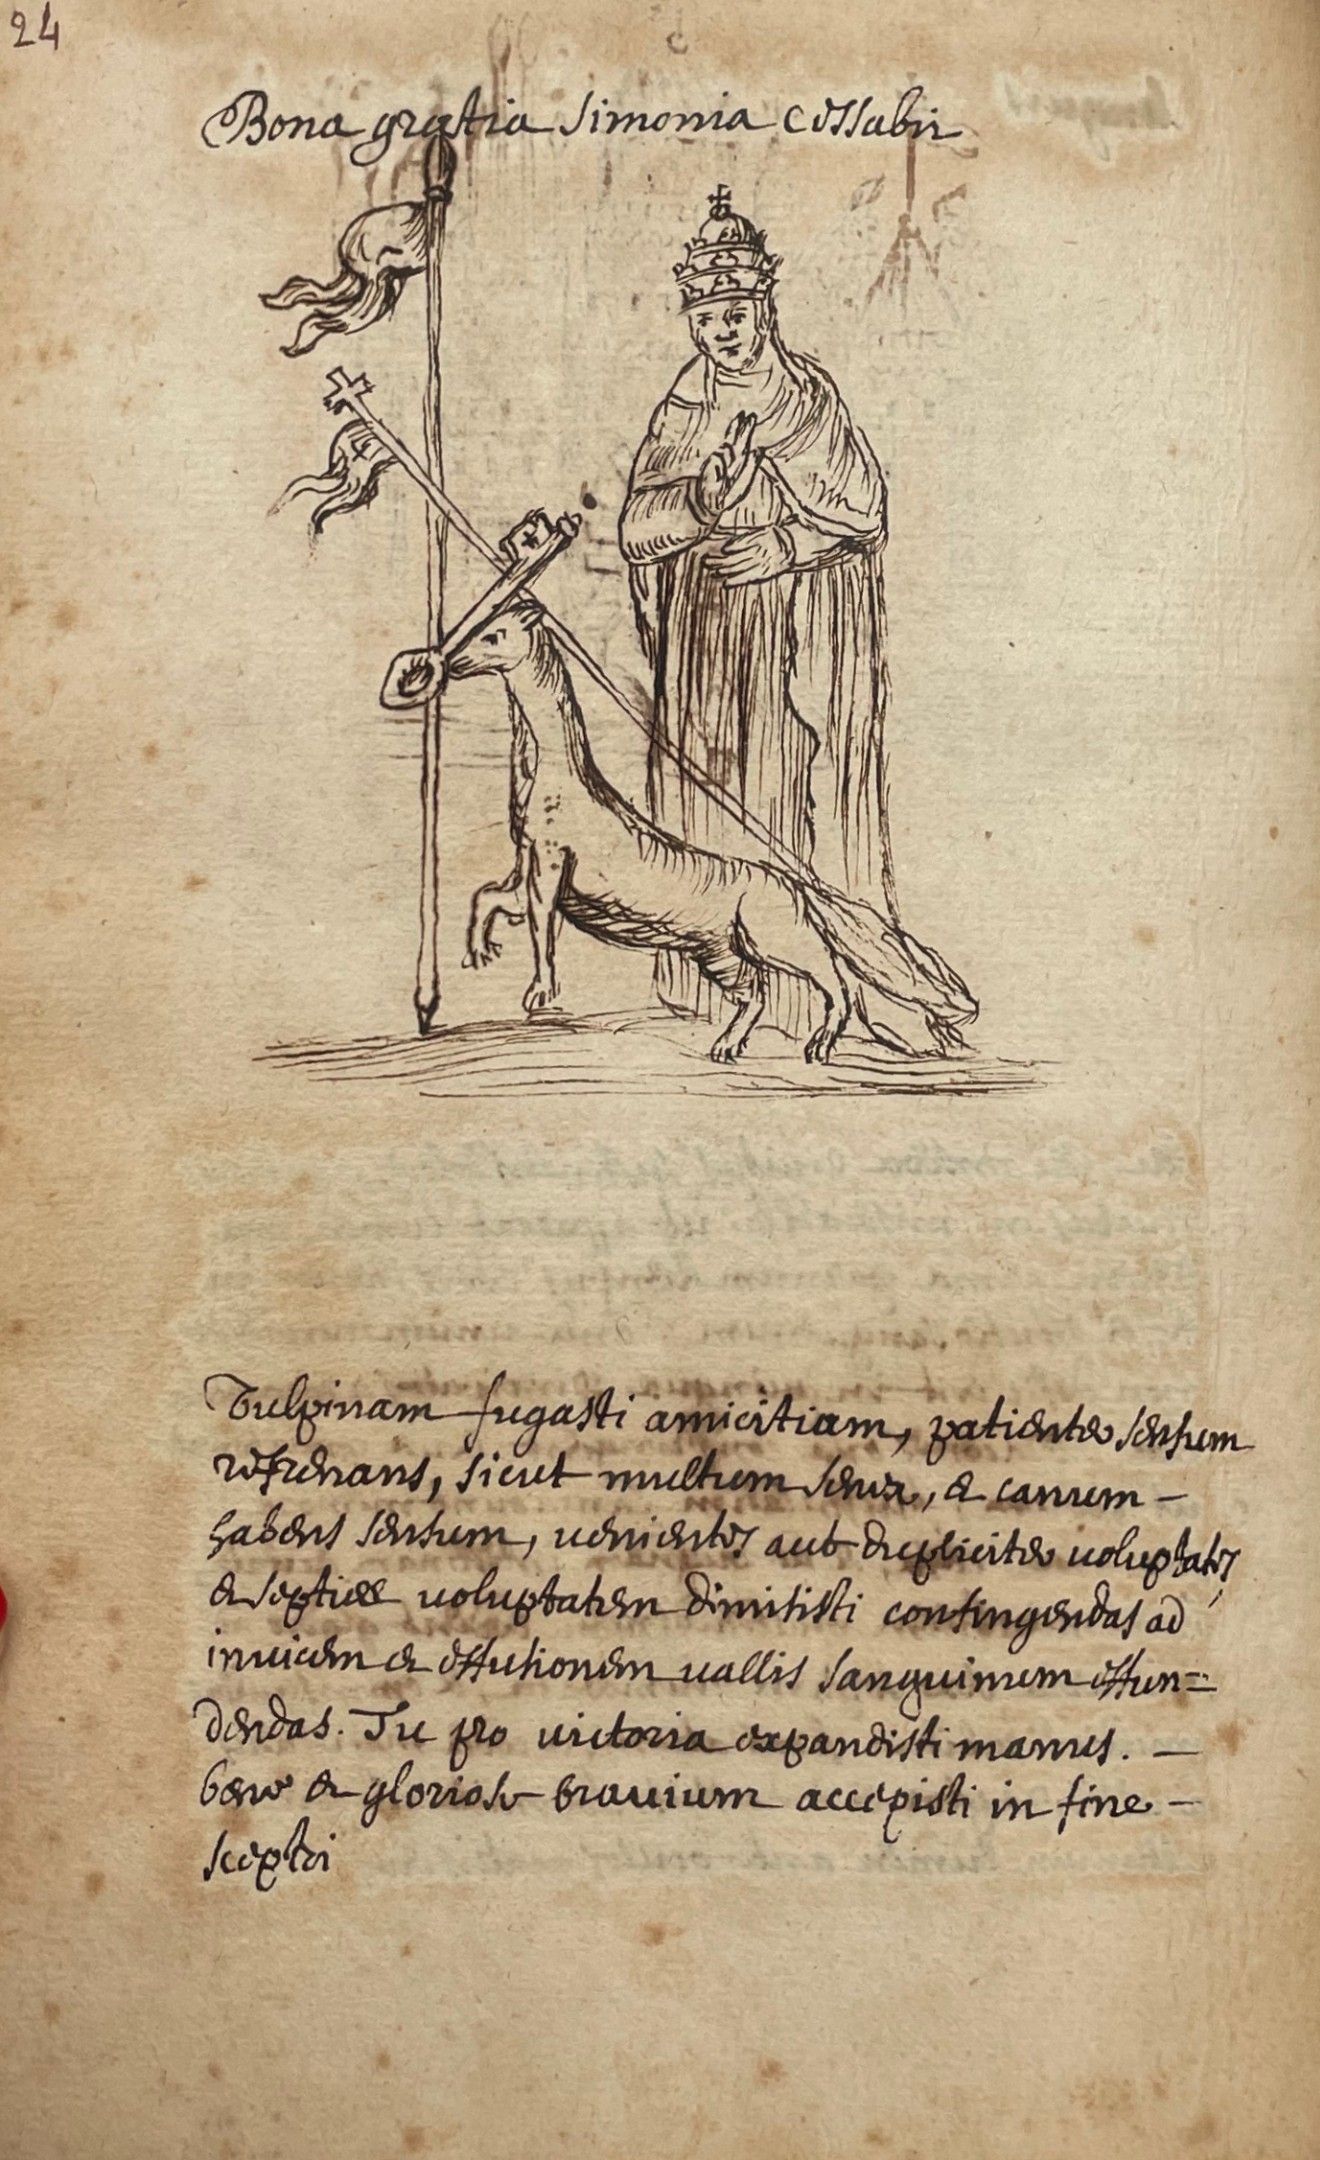 24
Bona gratia Simonia cessabit
Vulpinam fugasti amicitiam, patienter sensum
reserans, sicut multum senex, & canum –
habens sensum, uenientes aut dupliciter uoluptates
& septiee uoluptatem dimitisti contingendas ad
inuicem & effusionem uallis sanguinem effun=
dendas. Tu pro uictoria expandisti manus. –
bene & gloriose brauium accepisti in fine –
sceptri